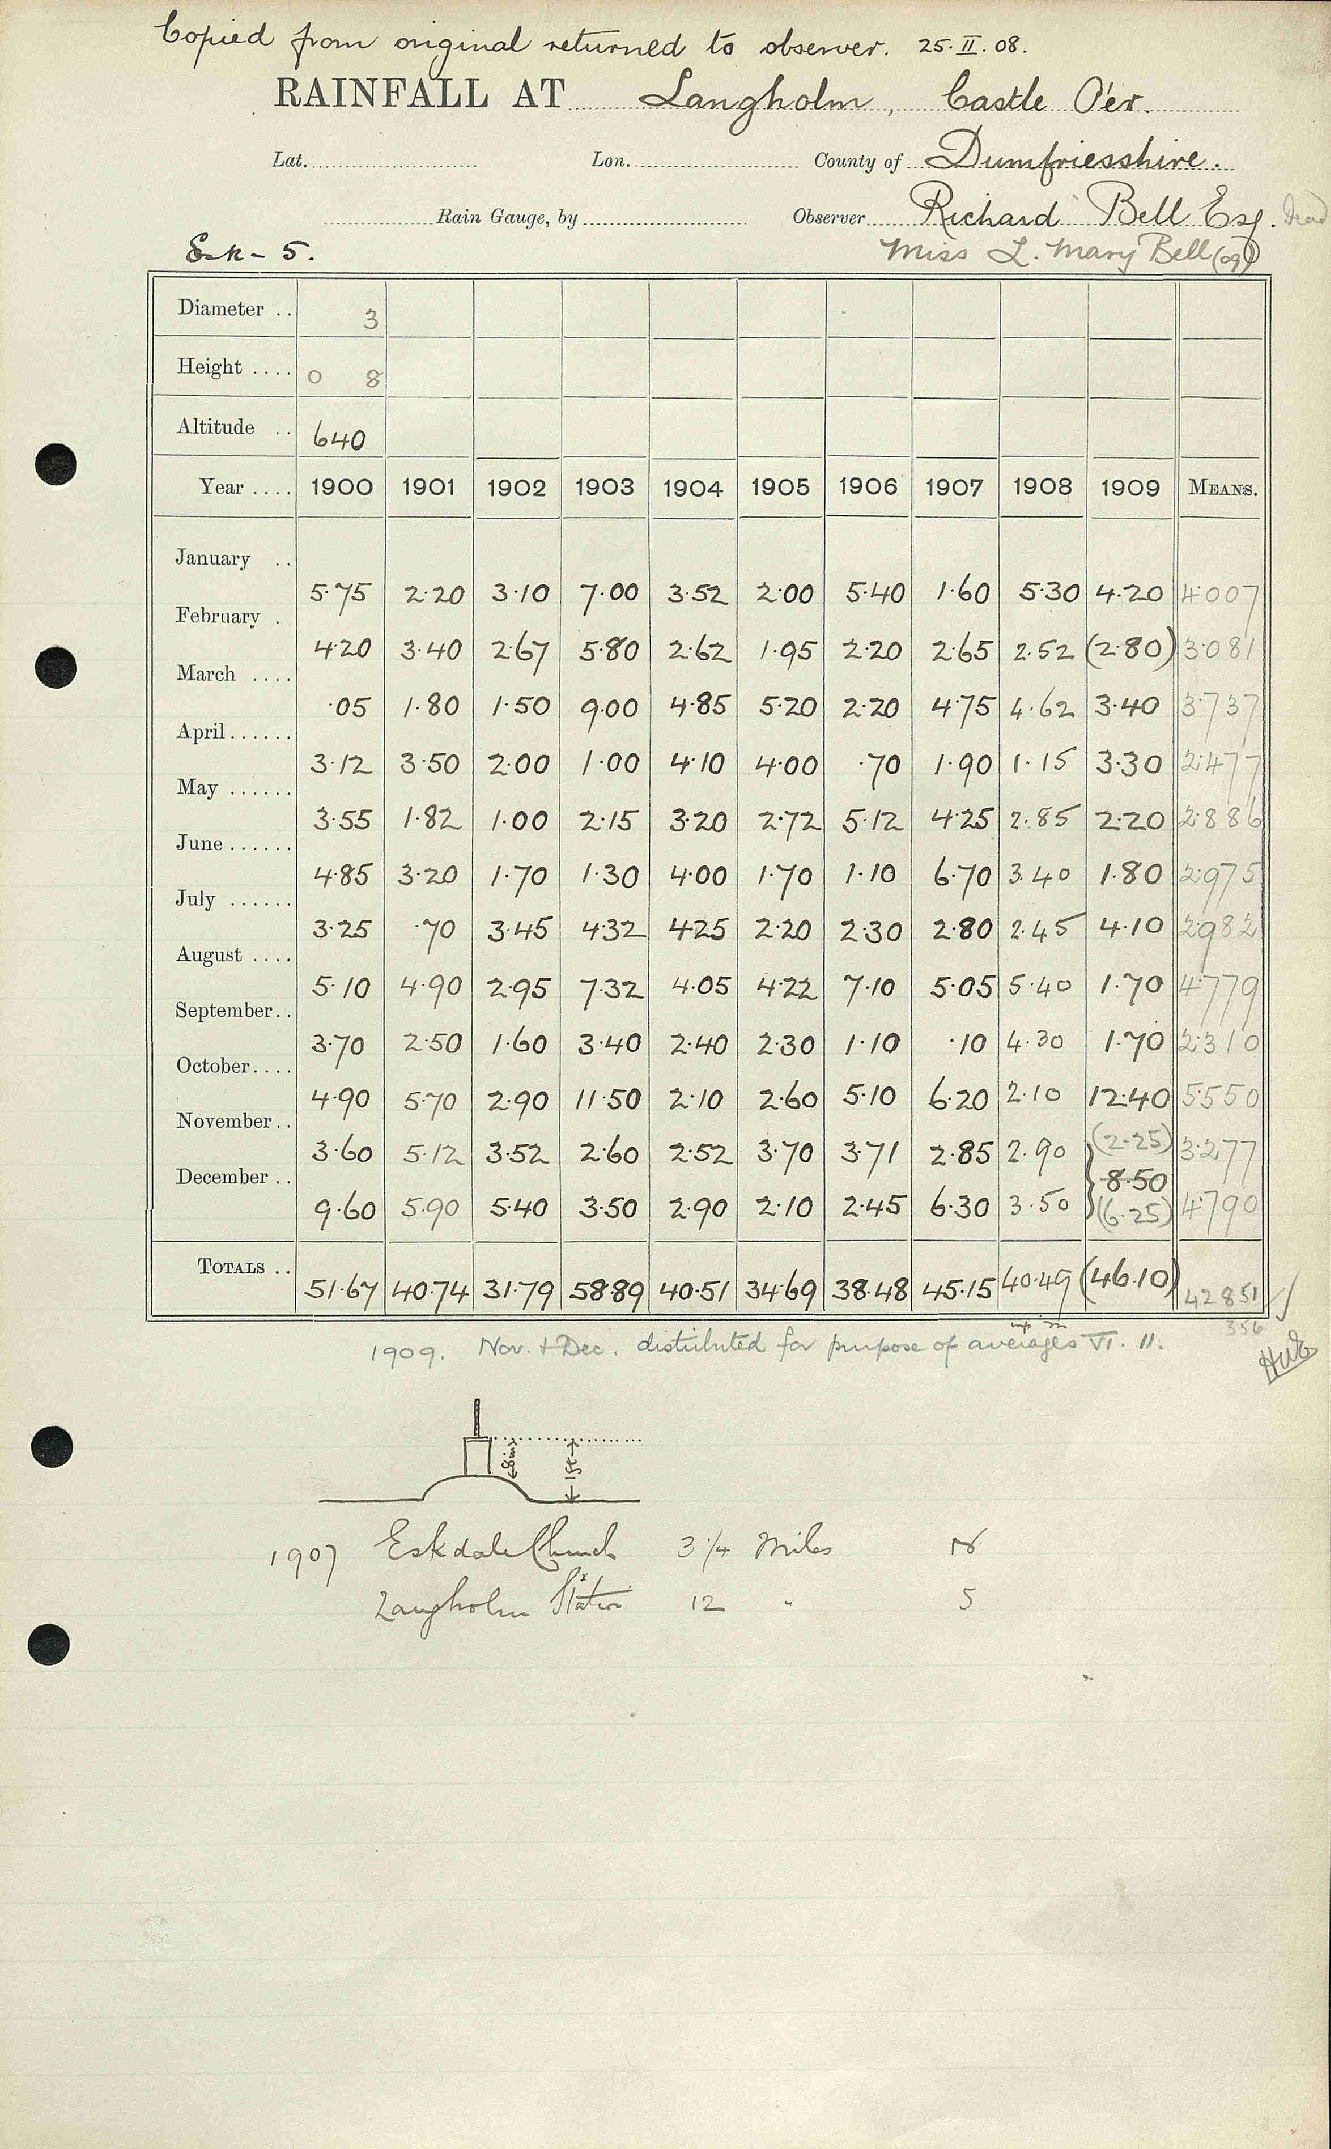 Copied from original returned to observer. 25.II.08.
RAINFALL AT Langholm, Castle O'er.
Lat. Lon. County of Dumfriesshire.
Rain Gauge, by Observer Richard Bell Esq. Dead
Esk - 5. Miss L. Mary Bell (09)
Diameter .. 3
Height .... 0 8
Altitude .. 640
Year .... 1900 1901 1902 1903 1904 1905 1906 1907 1908 1909 MEANS.
January .. 5.75 2.20 3.10 7.00 3.52 2.00 5.40 1.60 5.30 4.20 4.007
February . 4.20 3.40 2.67 5.80 2.62 1.95 2.20 2.65 2.52 (2.80) 3.081
March .... .05 1.80 1.50 9.00 4.85 5.20 2.20 4.75 4.62 3.40 3.737
April...... 3.12 3.50 2.00 1.00 4.10 4.00 .70 1.90 1.15 3.30 2.477
May ...... 3.55 1.82 1.00 2.15 3.20 2.72 5.12 4.25 2.85 2.20 2.886
June...... 4.85 3.20 1.70 1.30 4.00 1.70 1.10 6.70 3.40 1.80 2.975
July ...... 3.25 .70 3.45 4.32 4.25 2.20 2.30 2.80 2.45 4.10 2.982
August .... 5.10 4.90 2.95 7.32 4.05 4.22 7.10 5.05 5.40 1.70 4.779
September.. 3.70 2.50 1.60 3.40 2.40 2.30 1.10 .10 4.30 1.70 2.310
October.... 4.90 5.70 2.90 11.50 2.10 2.60 5.10 6.20 2.10 12.40 5.550
November.. 3.60 5.12 3.52 2.60 2.52 3.70 3.71 2.85 2.90 (2.25) 3.277
8.50
December .. 9.60 5.90 5.40 3.50 2.90 2.10 2.45 6.30 3.50 (6.25) 4.790
TOTALS .. 51.67 40.74 31.79 58.89 40.51 34.69 38.48 45.15 40.49 (46.10) 42 851
356
1909. Nov. & Dec. distributed for purpose of averages VI. 11.
8in 1ft
1907 Eskdale Church 3 1/4 Miles N
Langholm Station 12 " S